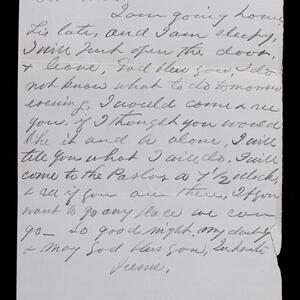 I am going home,
Tis late, and I am sleepy,
I will just open the door,
& leave, God bless you, I do
not know what to do tomorrow
evening, I would come & see
you, if I thought you would
like it and be alone, I will
tell you what I will do, I will
come to the Parlor at 7 1/2 o'clock,
& see if you are there, If you
want to go any place we can
go — So good night my darling
& may God bless you,